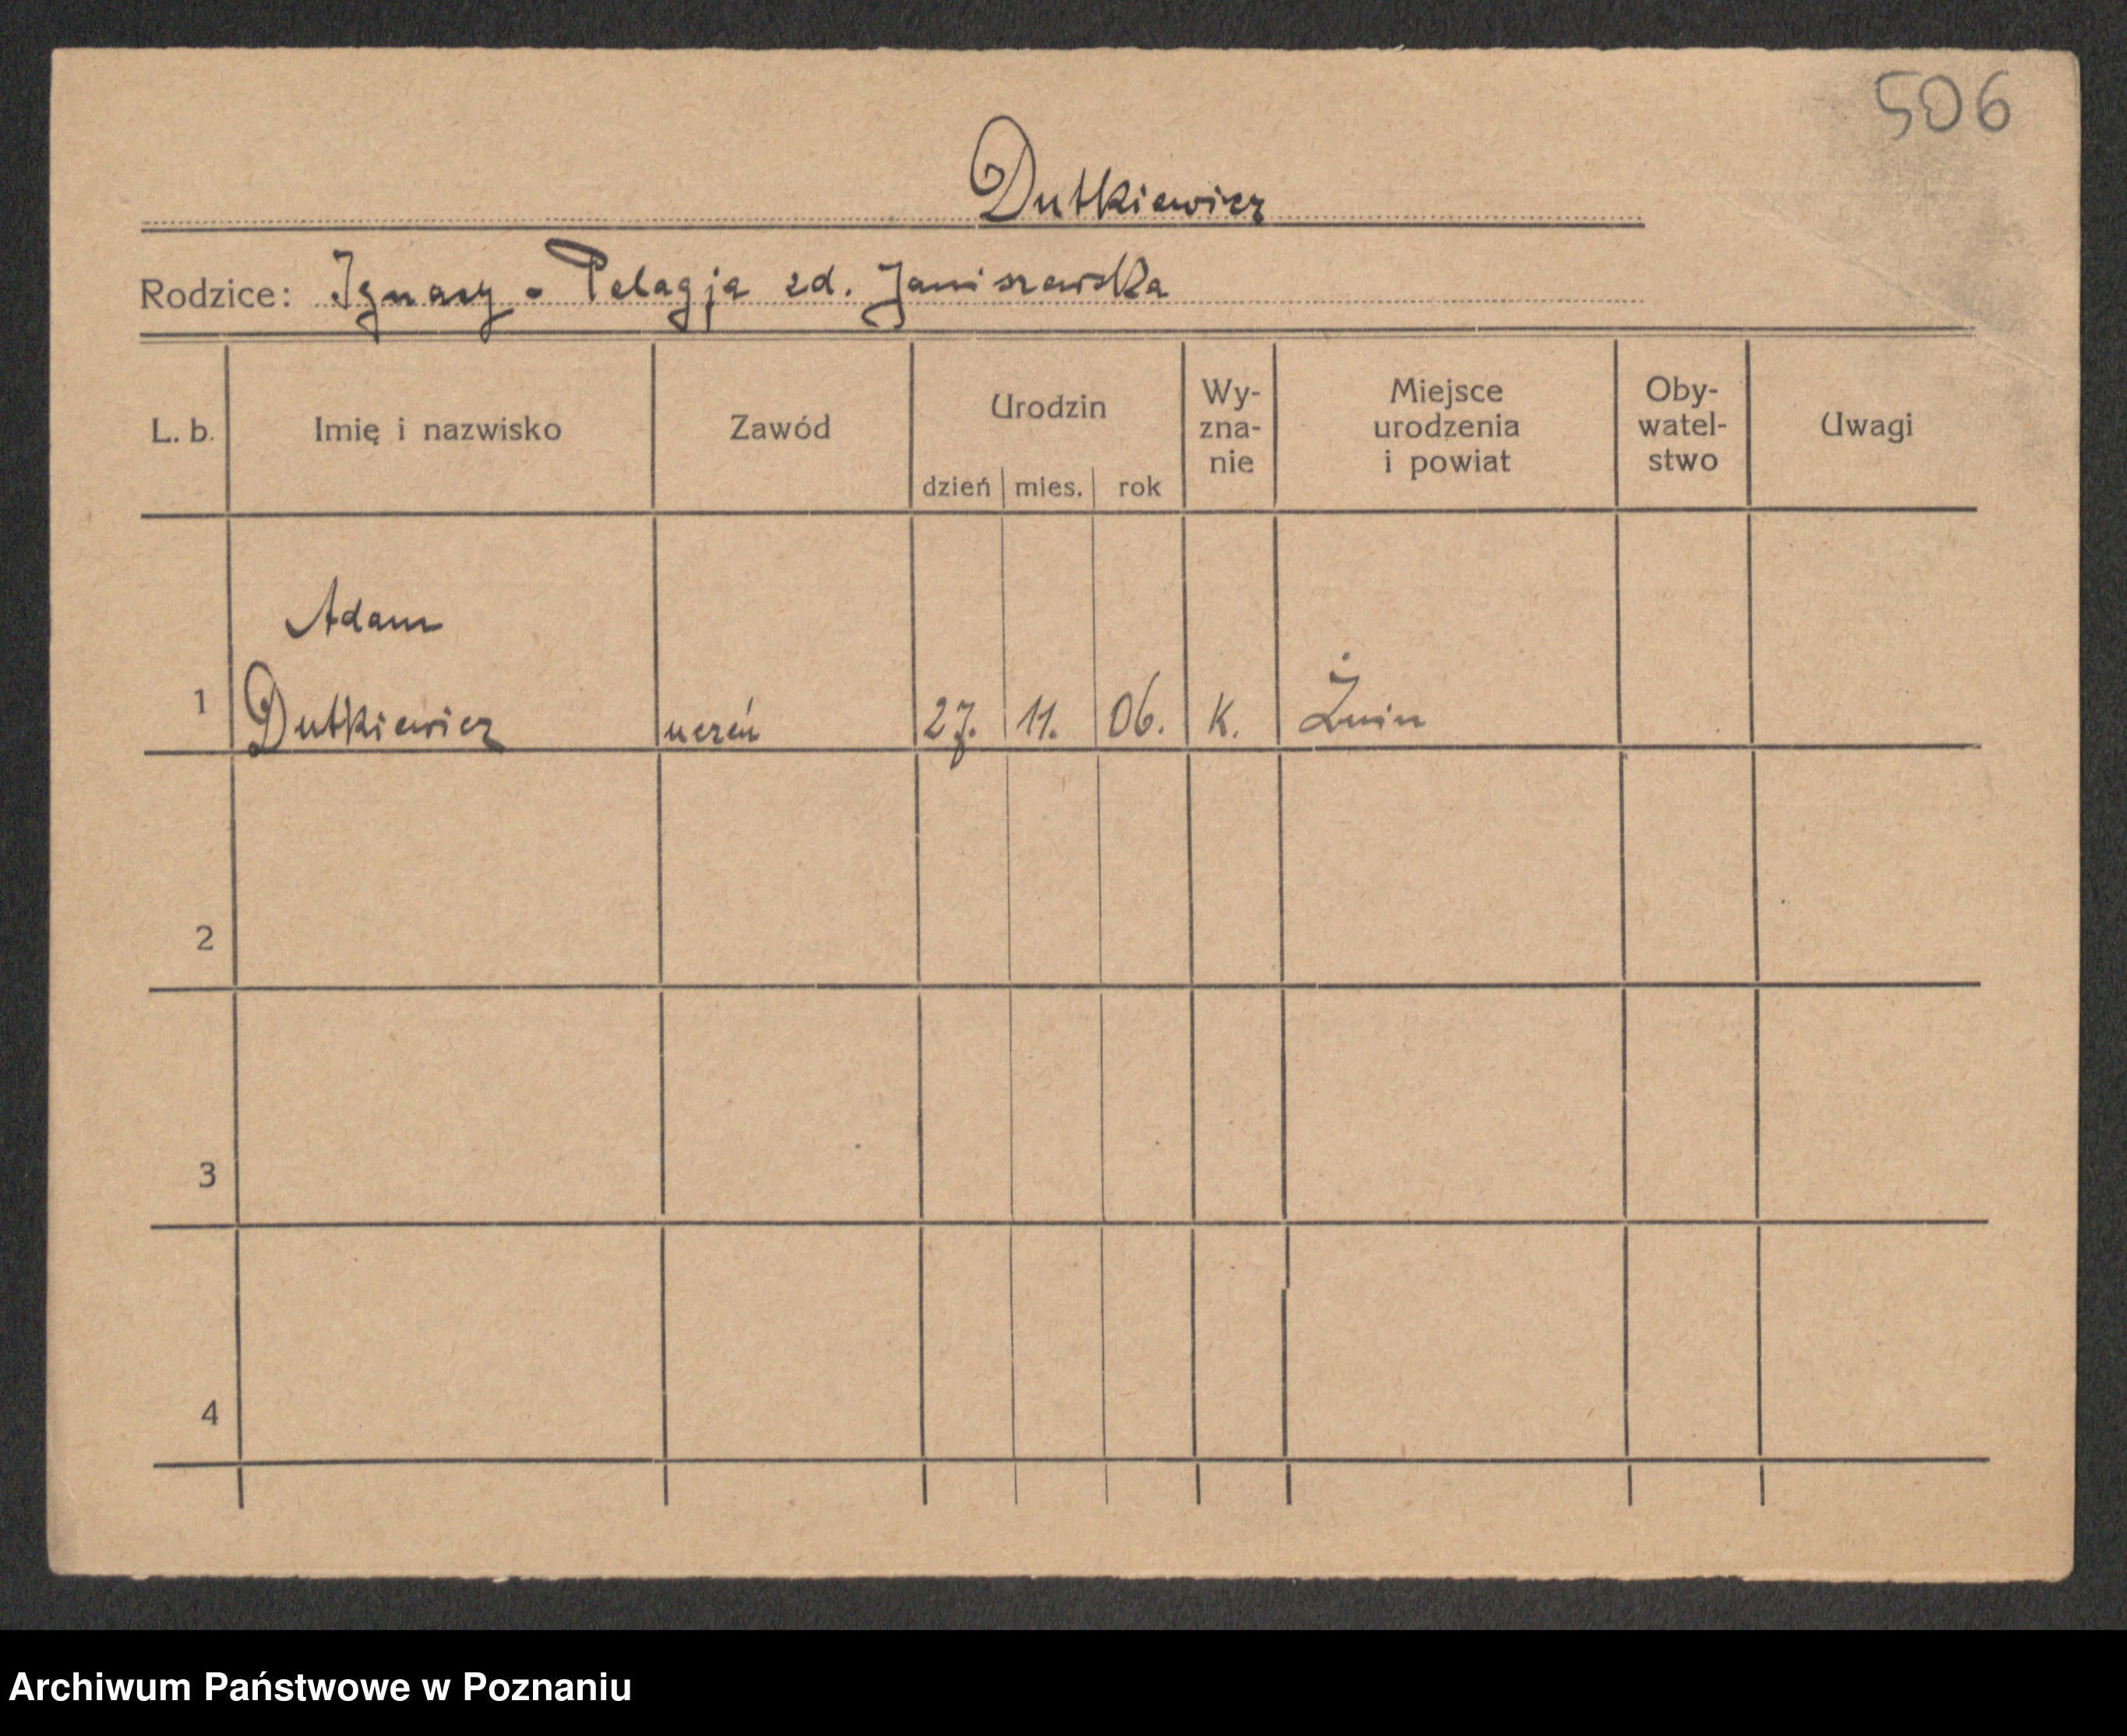 506
Dutkiewicz
Rodzice: Ignacy - Pelagja zd. Janiszewska
L. b. Imię i nazwisko Zawód Urodzin dzień mies. rok Wy-zna-nie Miejsce urodzenia i powiat Oby-watel-stwo Uwagi
Adam
1 Dutkiewicz uczeń 27. 11. 06. K. Żnin
2
3
4
Archiwum Państwowe w Poznaniu